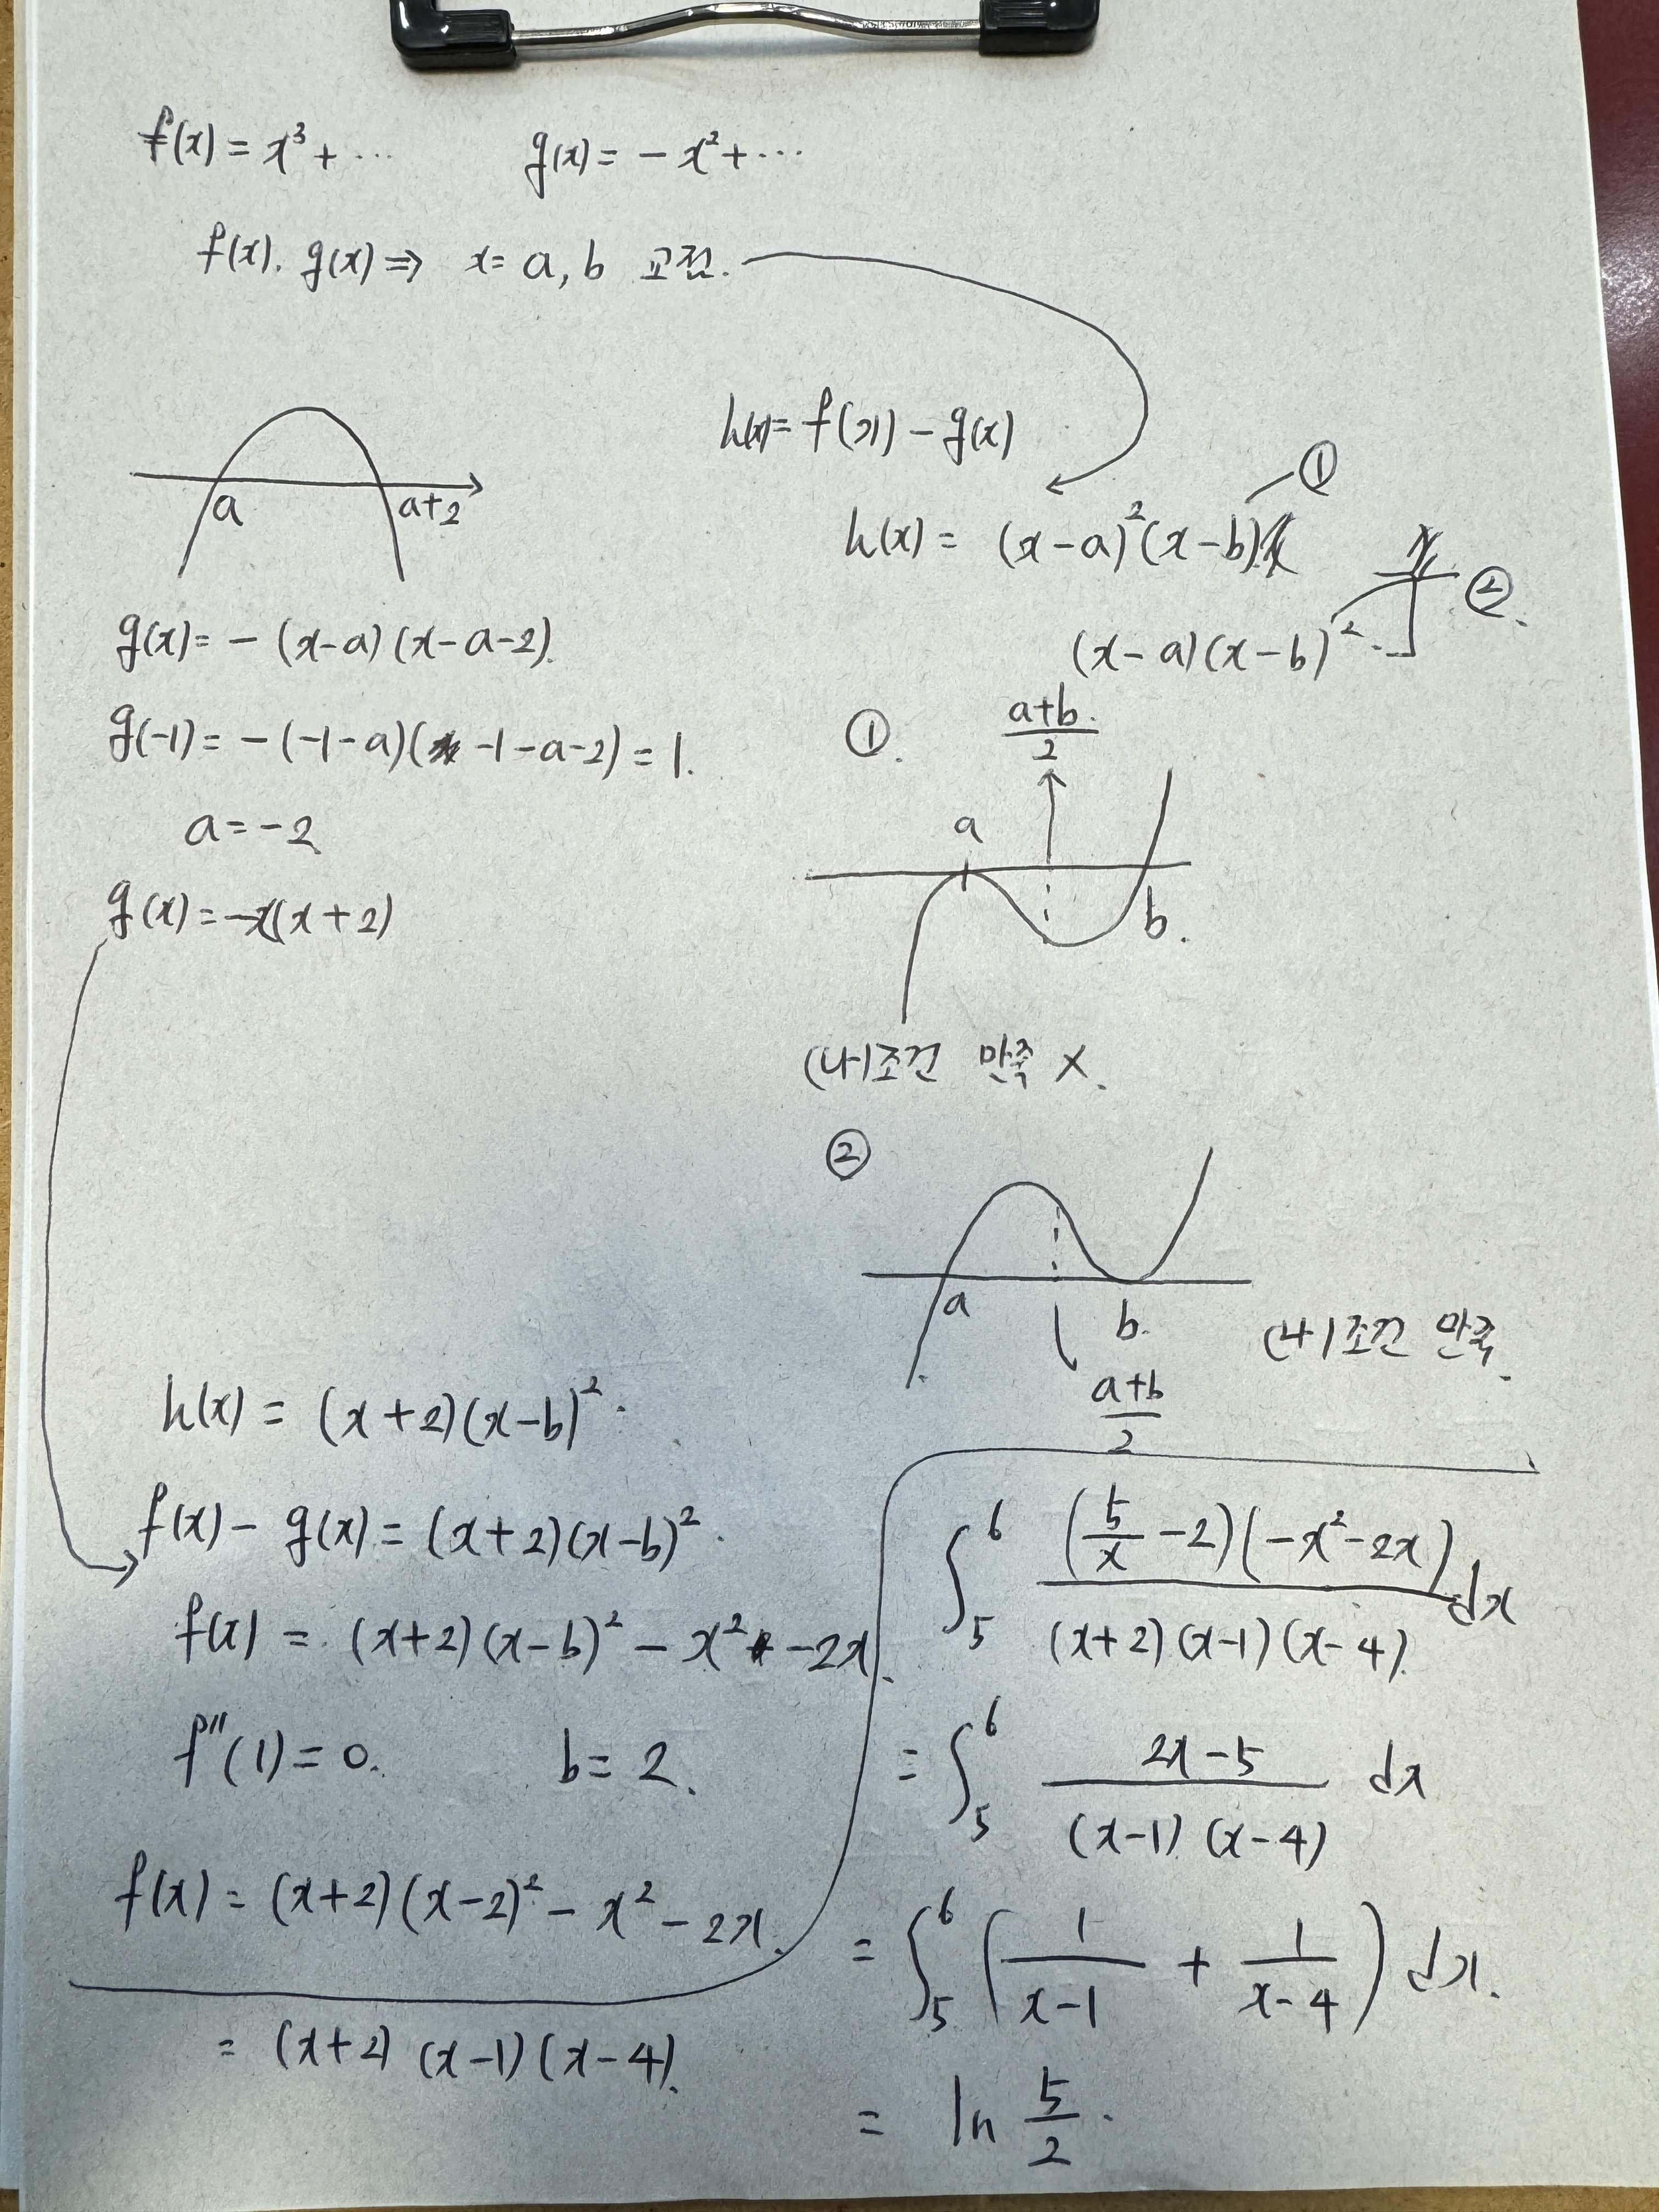 f(x) = x³ + ··· g(x) = − x² + ···
f(x). g(x) ⇒ x = a, b 교점.
a a+2
g(x) = − (x−a)(x−a−2).
g(−1) = − (−1−a)(−1−a−2) = 1.
a = −2
g(x) = −x(x+2)
h(x) = f(x) − g(x)
①
h(x) = (x−a)²(x−b)
②.
(x−a)(x−b)².
①. (a+b)/2
a
b.
(나)조건 만족 X.
②
a b.
(나)조건 만족.
(a+b)/2
h(x) = (x+2)(x−b)².
f(x) − g(x) = (x+2)(x−b)².
f(x) = (x+2)(x−b)² − x² −2x.
f''(1) = 0. b = 2.
f(x) = (x+2)(x−2)² − x² − 2x.
= (x+2)(x−1)(x−4).
∫₅⁶ (5/x −2)(−x²−2x) / (x+2)(x−1)(x−4) dx
= ∫₅⁶ 2x−5 / (x−1)(x−4) dx
= ∫₅⁶ (1/(x−1) + 1/(x−4)) dx.
= ln 5/2.